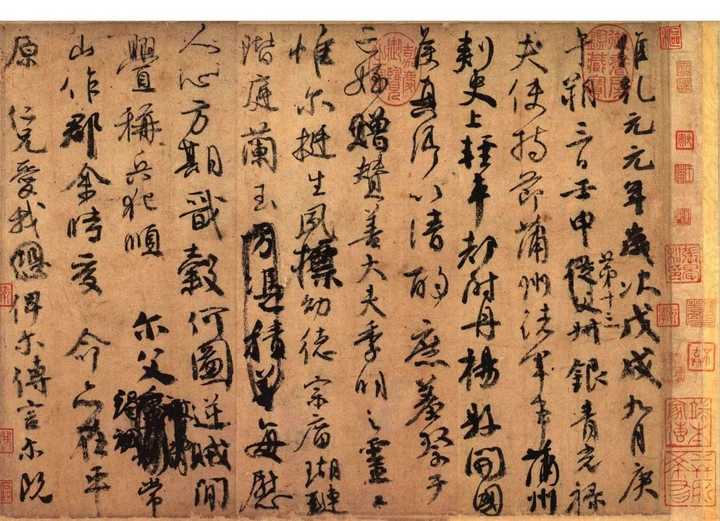 維乾元元年歲次戊戌九月庚
午朔三日壬申第十三從父銀青光祿
夫使持節蒲州諸軍事蒲州
刺史上輕車都尉丹楊縣開國
侯真卿以清酌庶羞祭于
亡姪贈贊善大夫季明之靈曰
惟爾挺生夙標幼德宗廟瑚璉
階庭蘭玉方憑積善每慰
人心方期戩穀何圖逆賊閒
釁稱兵犯順爾父竭誠常
山作郡余時受命亦在平
原仁兄愛我俾爾傳言爾既